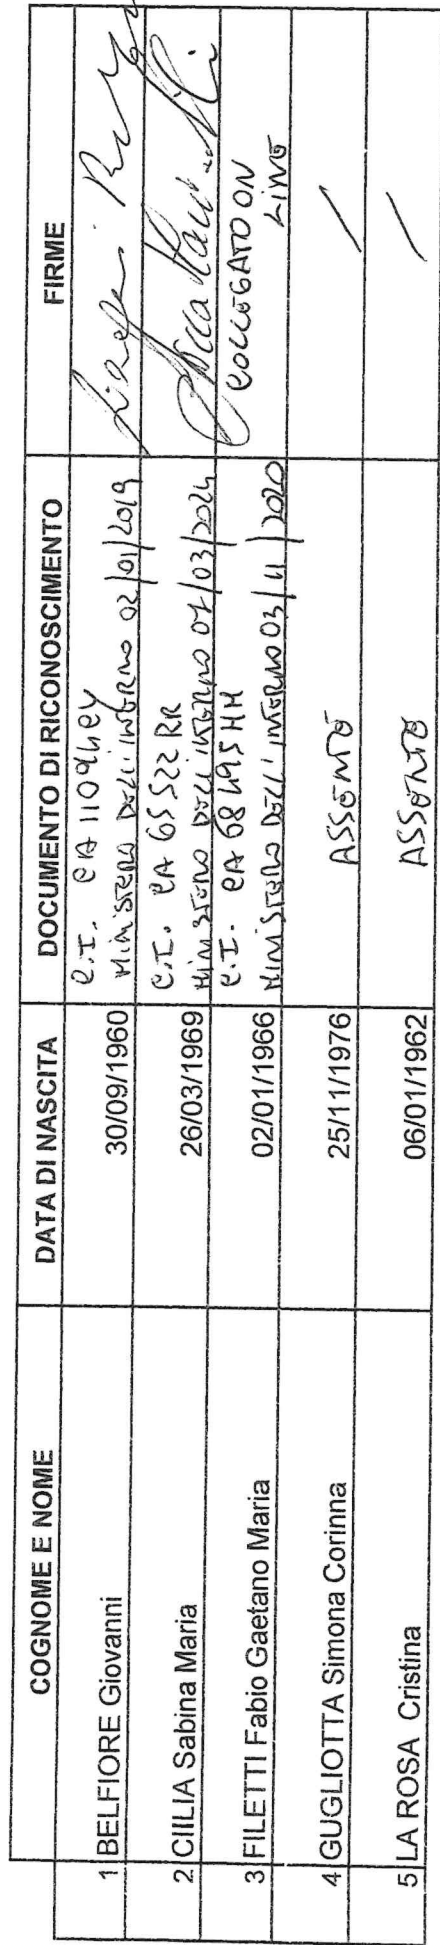 COGNOME E NOME DATA DI NASCITA DOCUMENTO DI RICONOSCIMENTO FIRME
1 BELFIORE Giovanni 30/09/1960 C.I. CA
MINISTERO DELL'INTERNO 02/01/2019
2 CIILIA Sabina Maria 26/03/1969 C.I. CA 65522 RR
MINISTERO DELL'INTERNO 03/2024
3 FILETTI Fabio Gaetano Maria 02/01/1966 C.I. CA 68495 HH COLLEGATO ON
MINISTERO DELL'INTERNO 03/11/2020 LINE
4 GUGLIOTTA Simona Corinna 25/11/1976 ASSENTE /
5 LA ROSA Cristina 06/01/1962 ASSENTE /